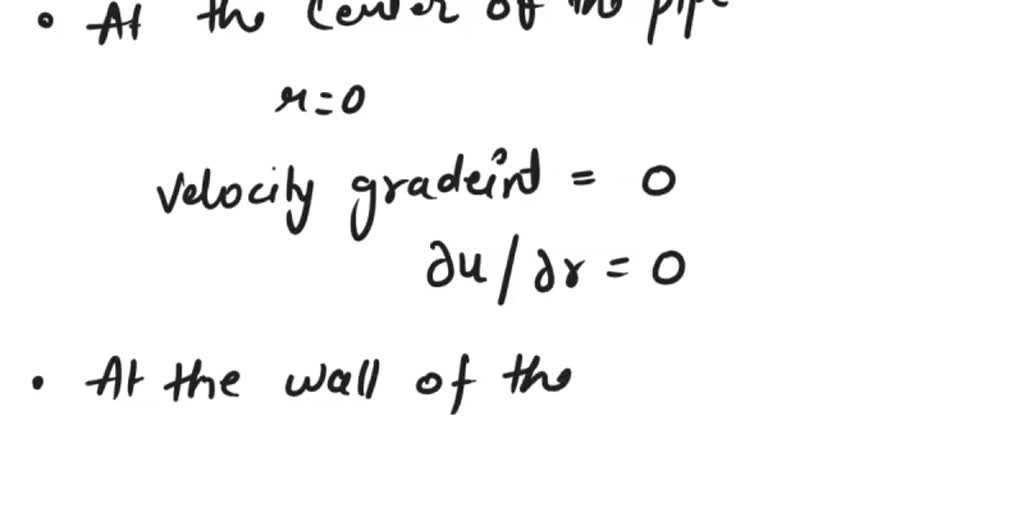 • At the center of the pipe
r=0
velocity gradeint = 0
∂u/∂r = 0
• At the wall of the